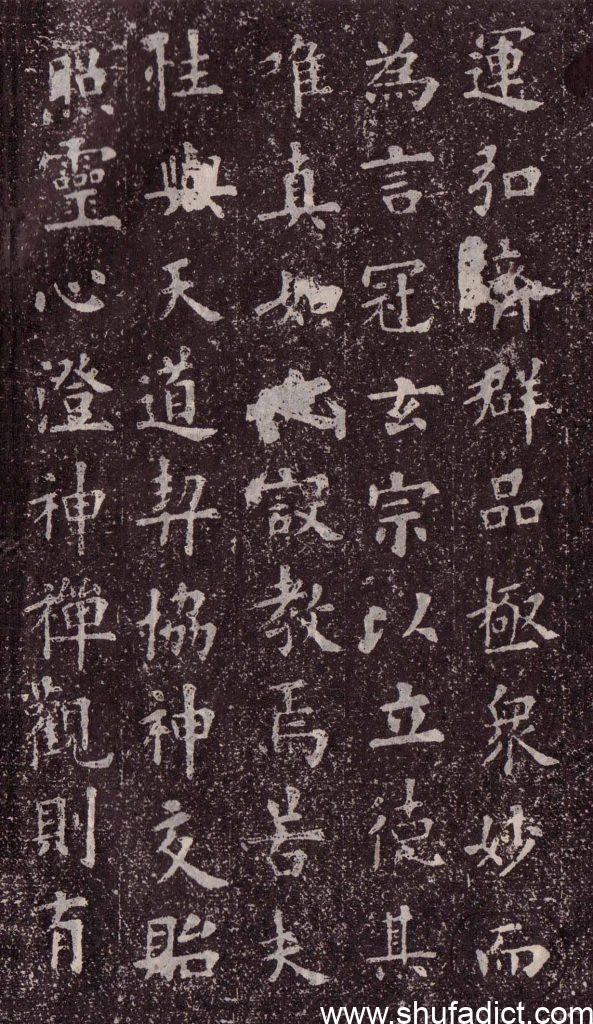 運弘濟群品極衆妙而
為言冠玄宗以立德其
唯真如設教焉若夫
性與天道契協神交貽
照靈心澄神禪觀則有
www.shufadict.com